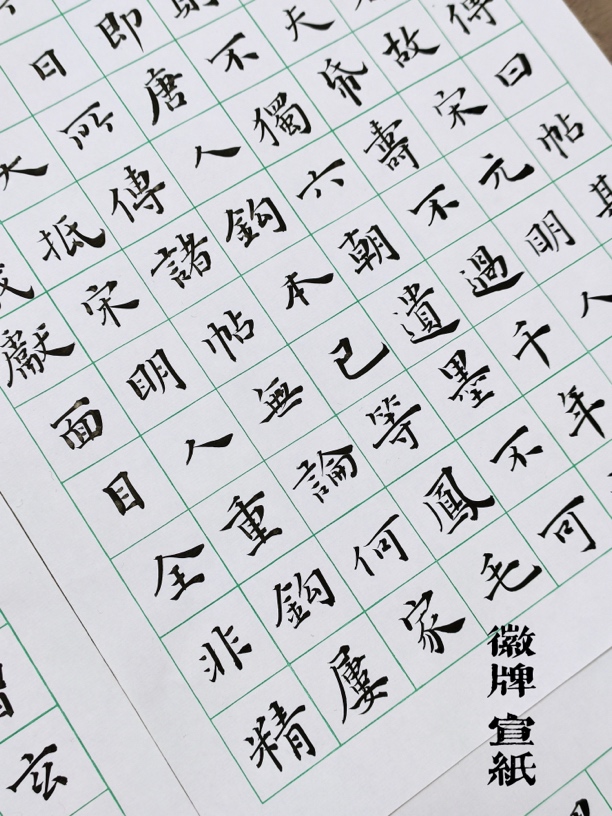 傳曰帖其
故宋元明人
夫帋壽不過千年
不獨六朝遺墨不可
即唐人鈎本已等鳳毛
日所傳諸帖無論何家
大抵宋明人重鈎屢
獻面目全非精
玄
徽牌
宣紙